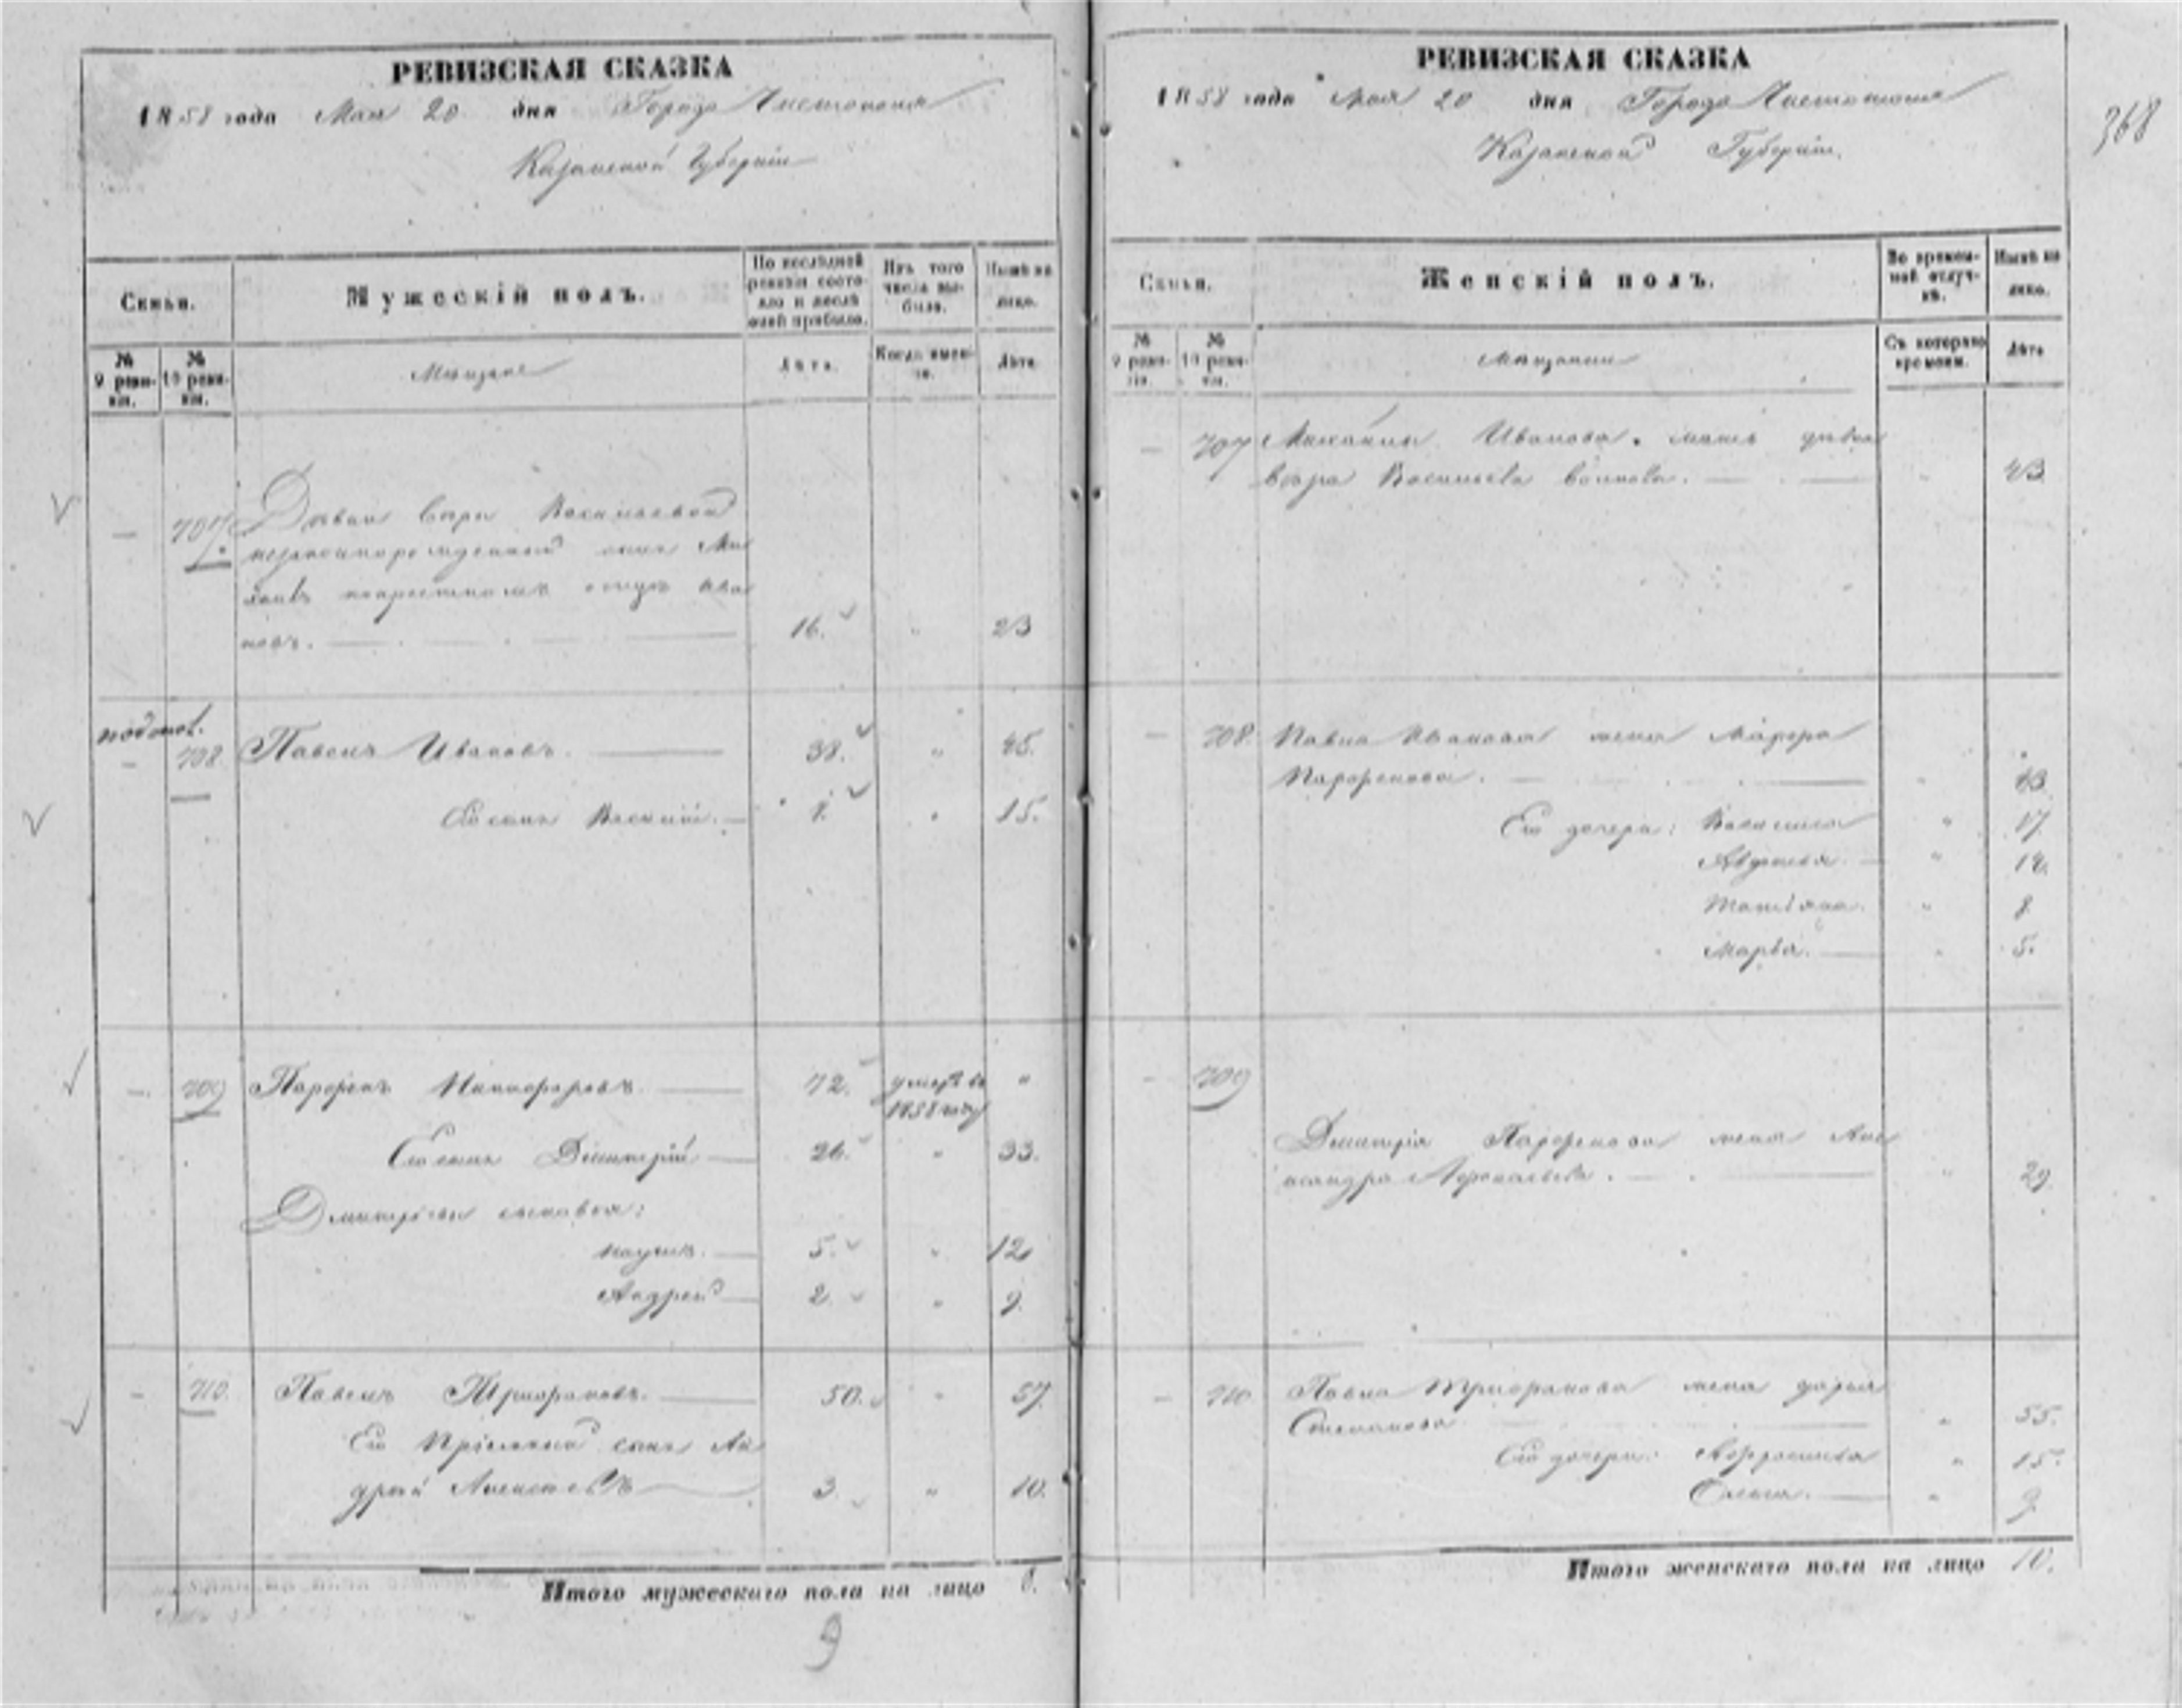 РЕВИЗСКАЯ СКАЗКА
1858 года Мая 20 дня Города Чистополя
Казанской Губерніи
Семьи.
Мужескій полъ.
По послѣдней ревизіи состояло и послѣ оной прибыло.
Изъ того числа выбыло.
Нынѣ на лицо.
№ 9 ревизіи.
№ 10 ревизіи.
Мѣщане
Лѣта.
Когда именно.
Лѣта.
— 707. Дѣвки Вѣры Васильевой
незаконнорожденный сынъ Ми
хаилъ по крестномъ отцѣ Ива
новъ. 16. " 23
— 708. Павелъ Ивановъ. 38. " 45.
Его сынъ Василій. 8. " 15.
— 709 Парфенъ Никифоровъ. 72. умеръ въ 1858 году "
Его сынъ Дмитрій 26. " 33.
Дмитрія сыновья:
Наумъ. 5. " 12
Андрей 2. " 9.
— 710. Павелъ Трифоновъ. 50. " 57.
Его Пріемный сынъ Ан
дрей Алексѣевъ 3. " 10.
Итого мужескаго пола на лицо 8.
9
РЕВИЗСКАЯ СКАЗКА
1858 года Мая 20 дня Города Чистополя
Казанской Губерніи.
368
Семьи.
Женскій полъ.
Во временной отлучкѣ.
Нынѣ на лицо.
№ 9 ревизіи.
№ 10 ревизіи.
Мѣщанки
Съ котораго времени.
Лѣта
— 707 Михаилы Иванова мать дѣвка
Вѣра Васильева. " 43
— 708. Павла Иванова жена Мавра
Парфенова. " 43
Его дочери: Василиса " 17
Авдотья. " 12.
Татьяна. " 8
Марья. " 5.
— 709
Дмитрія Парфенова жена Але
ксандра Афонасьева. " 29
— 710 Павла Трифонова жена Дарья
Степанова " 55.
Его дочери: Афросинья " 15.
Олена. " 9
Итого женскаго пола на лицо 10.